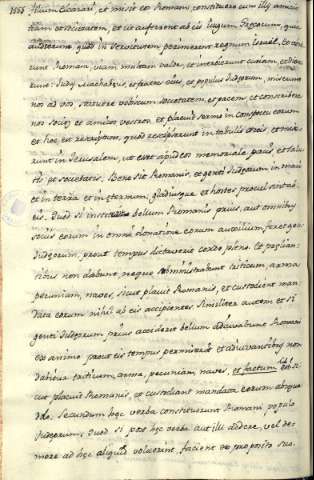 filium Eleazari, et misit eos Romam constituere cum illis amici
tiam et societatem, et ut auferrent ab eis iugum Grecorum, quia
viderunt, quod in servitutem premerent regnum israël, et abie
runt Romam, viam multam valde, et introierunt curiam, et dixe
runt: Judas Machabeus, et fratres eius, et populus Judeorum miserunt
nos ad vos statuere vobiscum societatem, et pacem, et conscribere
nos socios et amicos vestros. et placuit sermo in conspectu eorum
et hoc est rescriptum, quod rescripserunt in tabulis ereis, et mise
runt in Jerusalem, ut esset apud eos memoriale pacis, et socie
tatis. Bene sit Romanis, et genti Judeorum in mari
et in terra et in eternum, gladiusque et hostis procul sint ab
eis. Quod si institerit bellum Romanis prius, aut omnibus
sociis eorum in omni dominatione eorum auxilium feret gens
Judeorum, prout tempus dictaverit corde pleno. Et prelian-
tibus non dabunt neque subministrabunt triticum, arma,
pecuniam, naves, sicut placuit Romanis, et custodient man
data eorum nihil ab eis accipientes. Similiter autem et si
genti Judeorum prius acciderit bellum adiuvabunt Romani
ex animo prout eis tempus permiserit et adiuvantibus non
dabitur triticum, arma, pecuniam naves, et factum est si
cut placuit Romanis, et custodient mandata eorum absque
dolo. Secundum hec verba constituerunt Romani populo
Judeorum. Quod si post hec verba aut illi addere, vel de-
mere ad hec aliquid voluerint, facient ex proposito suo.